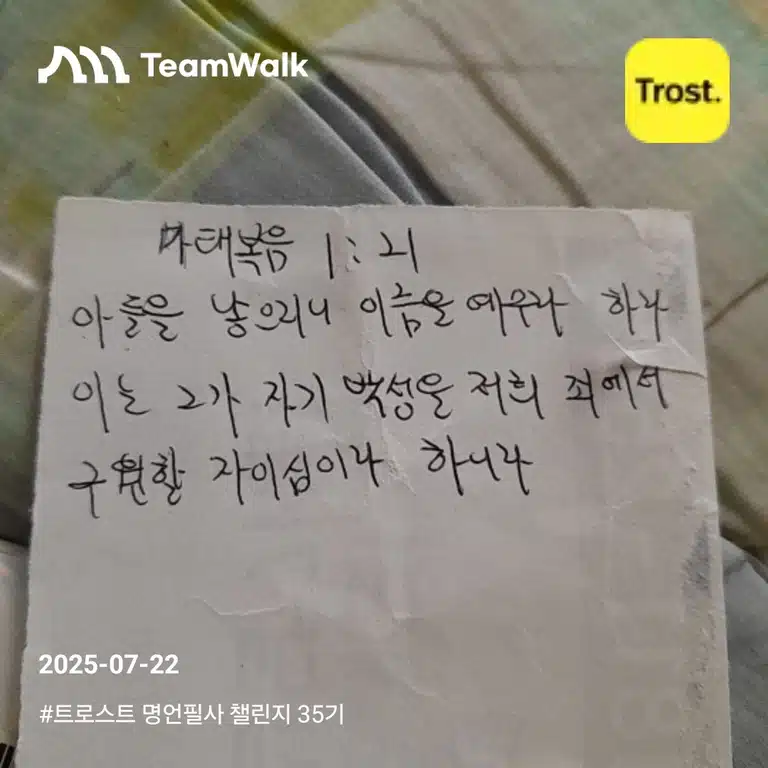 TeamWalk
Trost.
마태복음 1:21
아들을 낳으리니 이름을 예수라 하라
이는 그가 자기 백성을 저희 죄에서
구원할 자이심이라 하니라
2025-07-22
#트로스트 명언필사 챌린지 35기